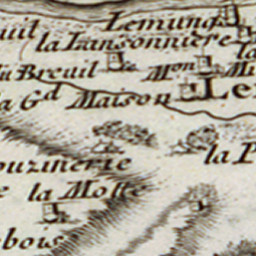 uil Lemung
la Lansonniere
la
du Breuil Mon Mi
la Gd Maison Le
ouzinerie la P
e la Motte
bois